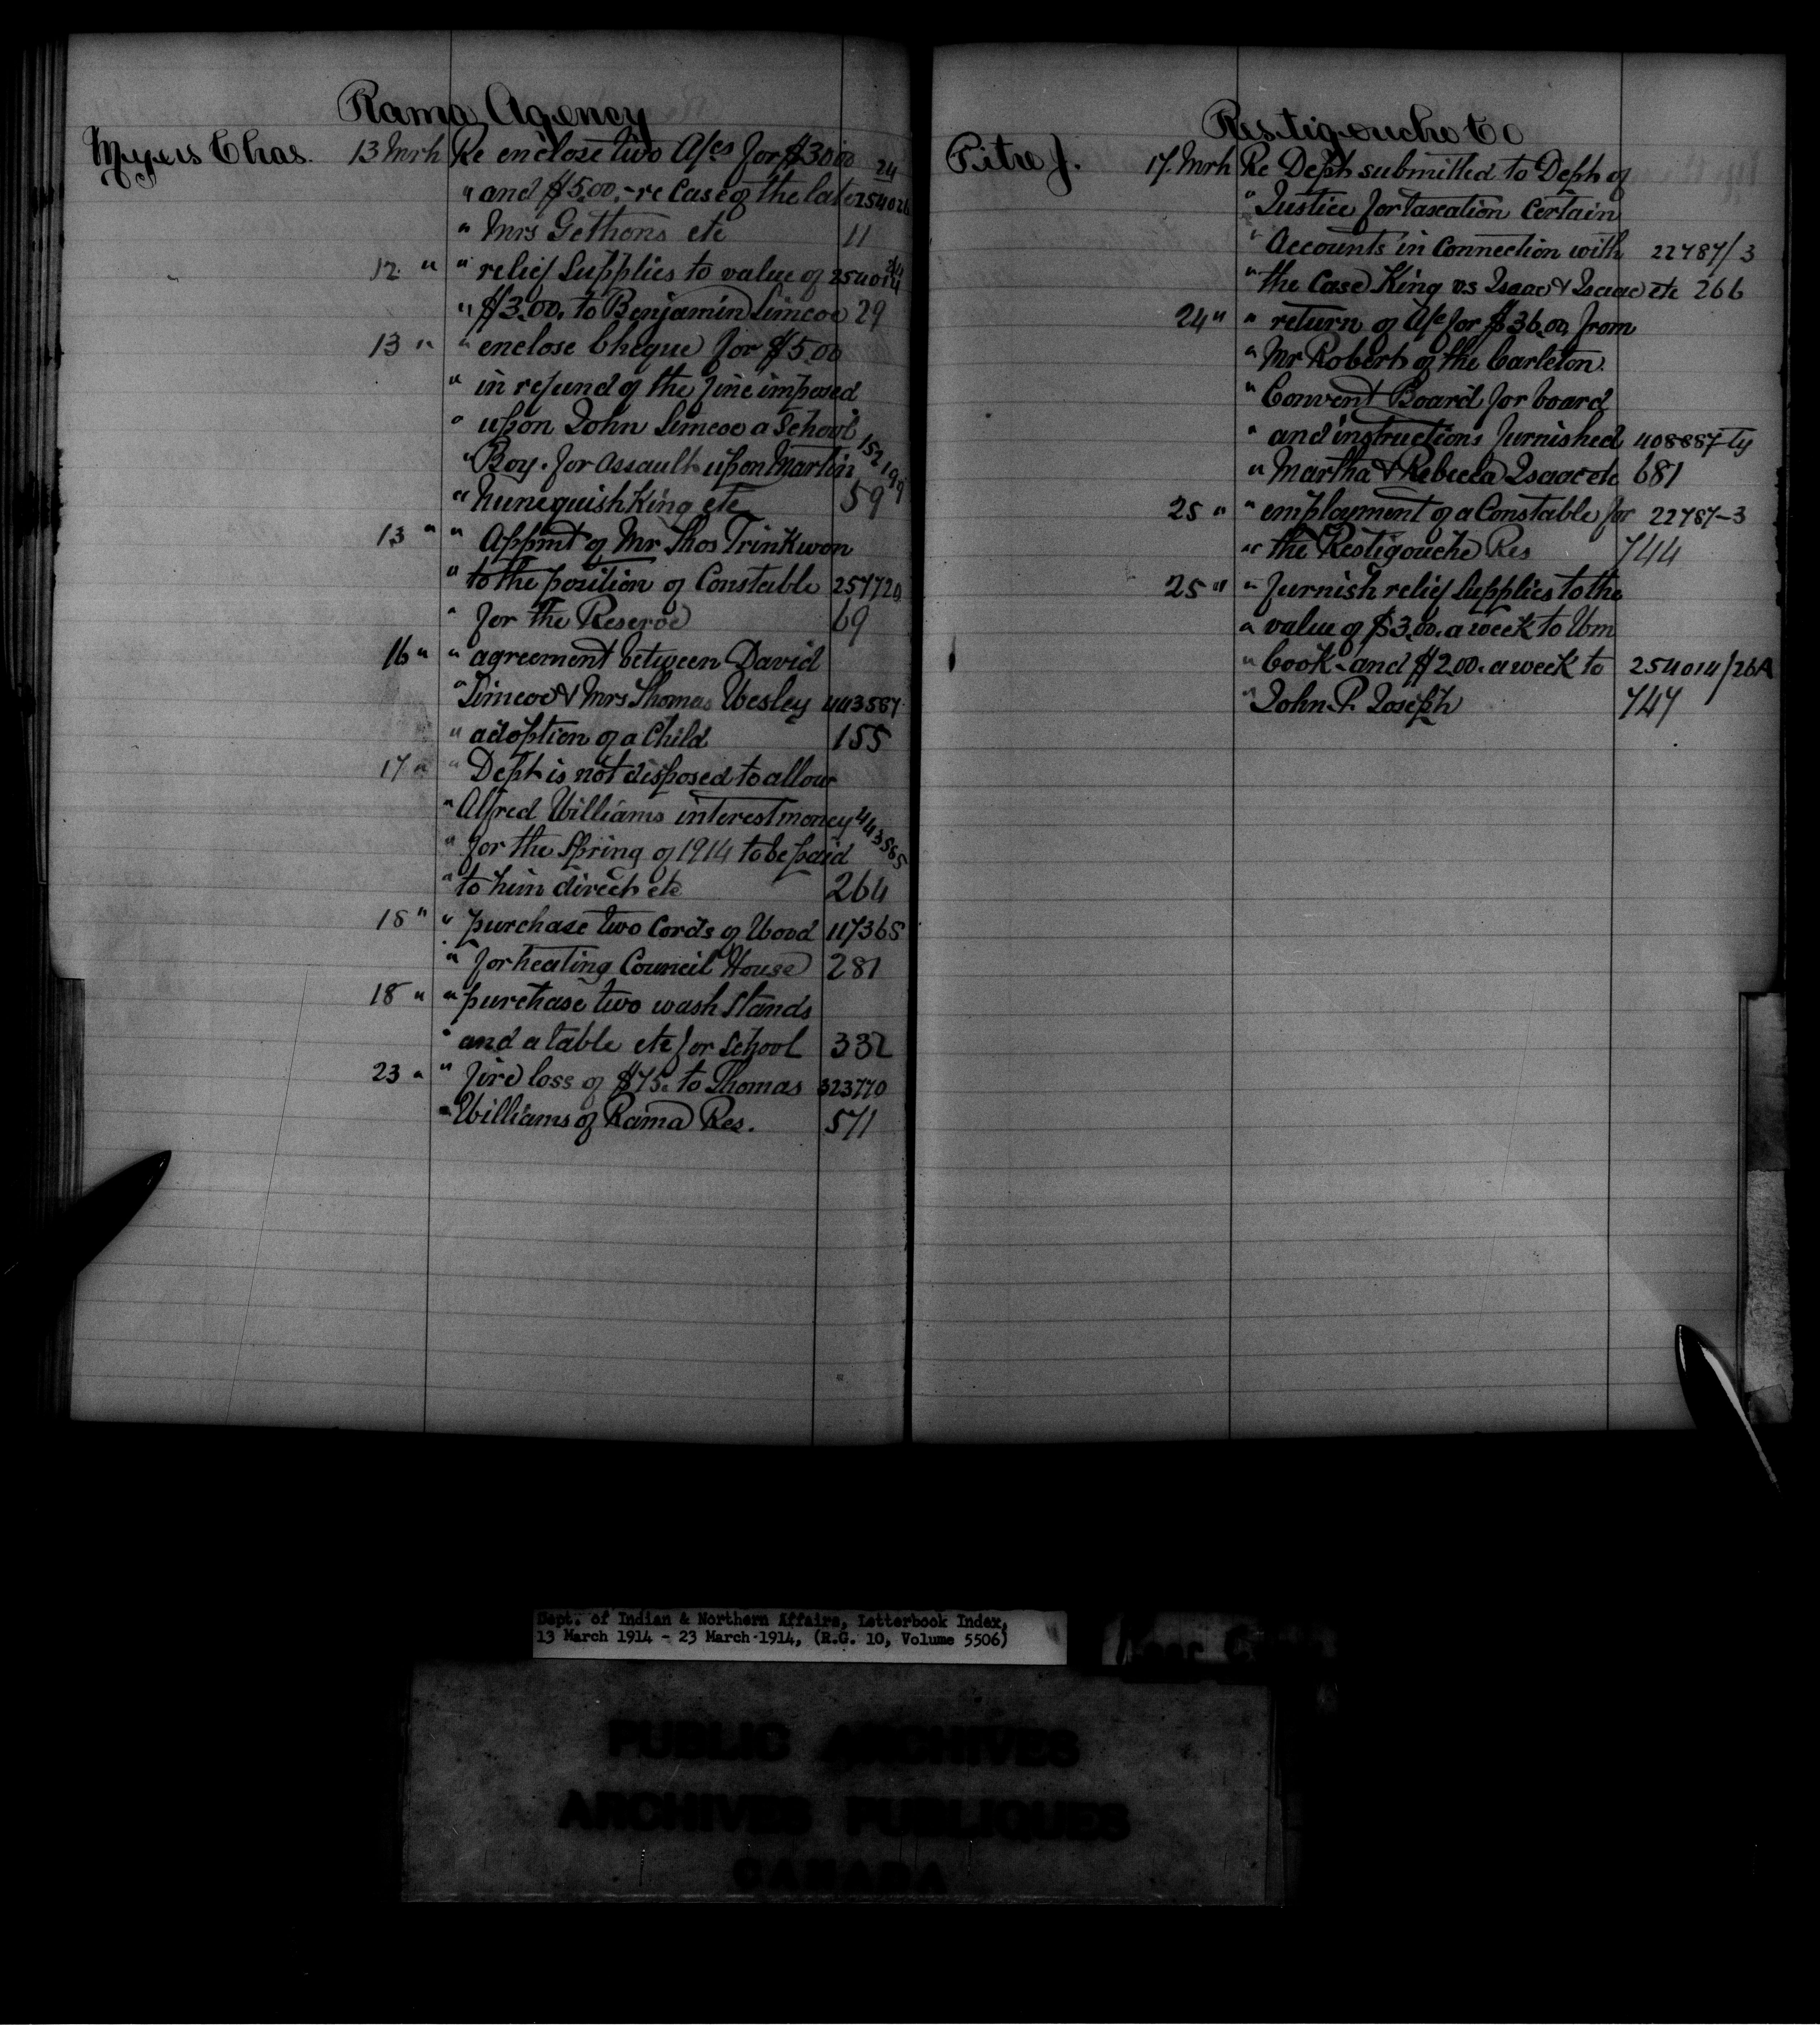 Rama Agency
Myers Chas. 13 Mrh Re enclose two A/cs for $30.00 24
" and $5.00,- re Case of the late 254026
" Mrs Gethons etc 11
12 " " relief Supplies to value of 254014
" $3.00. to Benjamin Simcoe 29
13 " " enclose Cheque for $5.00
" in refund of the fine imposed
" upon John Simcoe a School
" Boy. for assault upon Martin 152199
" Nunequishking etc 59
13 " " Appmt of Mr Thos Trinkwon
" to the position of Constable 257720
" for the Reserve 69
16 " " agreement between David
" Simcoe & Mrs Thomas Wesley 443587
" adoption of a Child 155
17 " " Dept is not disposed to allow
" Alfred Williams interest money 443565
" for the Spring of 1914 to be paid
" to him direct etc 264
18 " " purchase two Cords of Wood 117365
" for heating Council House 281
18 " " purchase two wash Stands
" and a table etc for School 332
23 " " fire loss of $75. to Thomas 323770
" Williams of Rama Res. 571
Restigouche Co
Pitre J. 17. Mrh Re Dept submitted to Dept of
" Justice for taxation Certain
" Accounts in Connection with 22787/3
" the Case King vs Isaac & Isaac etc 266
24 " " return of A/c for $36.00 from
" Mr Robert of the Carleton.
" Convent Board for board
" and instructions furnished 408887-Ty
" Martha & Rebecca Isaac etc 681
25 " " employment of a Constable for 22787-3
" the Restigouche Res 744
25 " " furnish relief Supplies to the
" value of $3.00. a week to Wm
" Cook - and $2.00. a week to 254014/26A
" John P. Joseph 747
Dept. of Indian & Northern Affairs, Letterbook Index,
13 March 1914 - 23 March 1914, (R.G. 10, Volume 5506)
PUBLIC ARCHIVES
ARCHIVES PUBLIQUES
CANADA